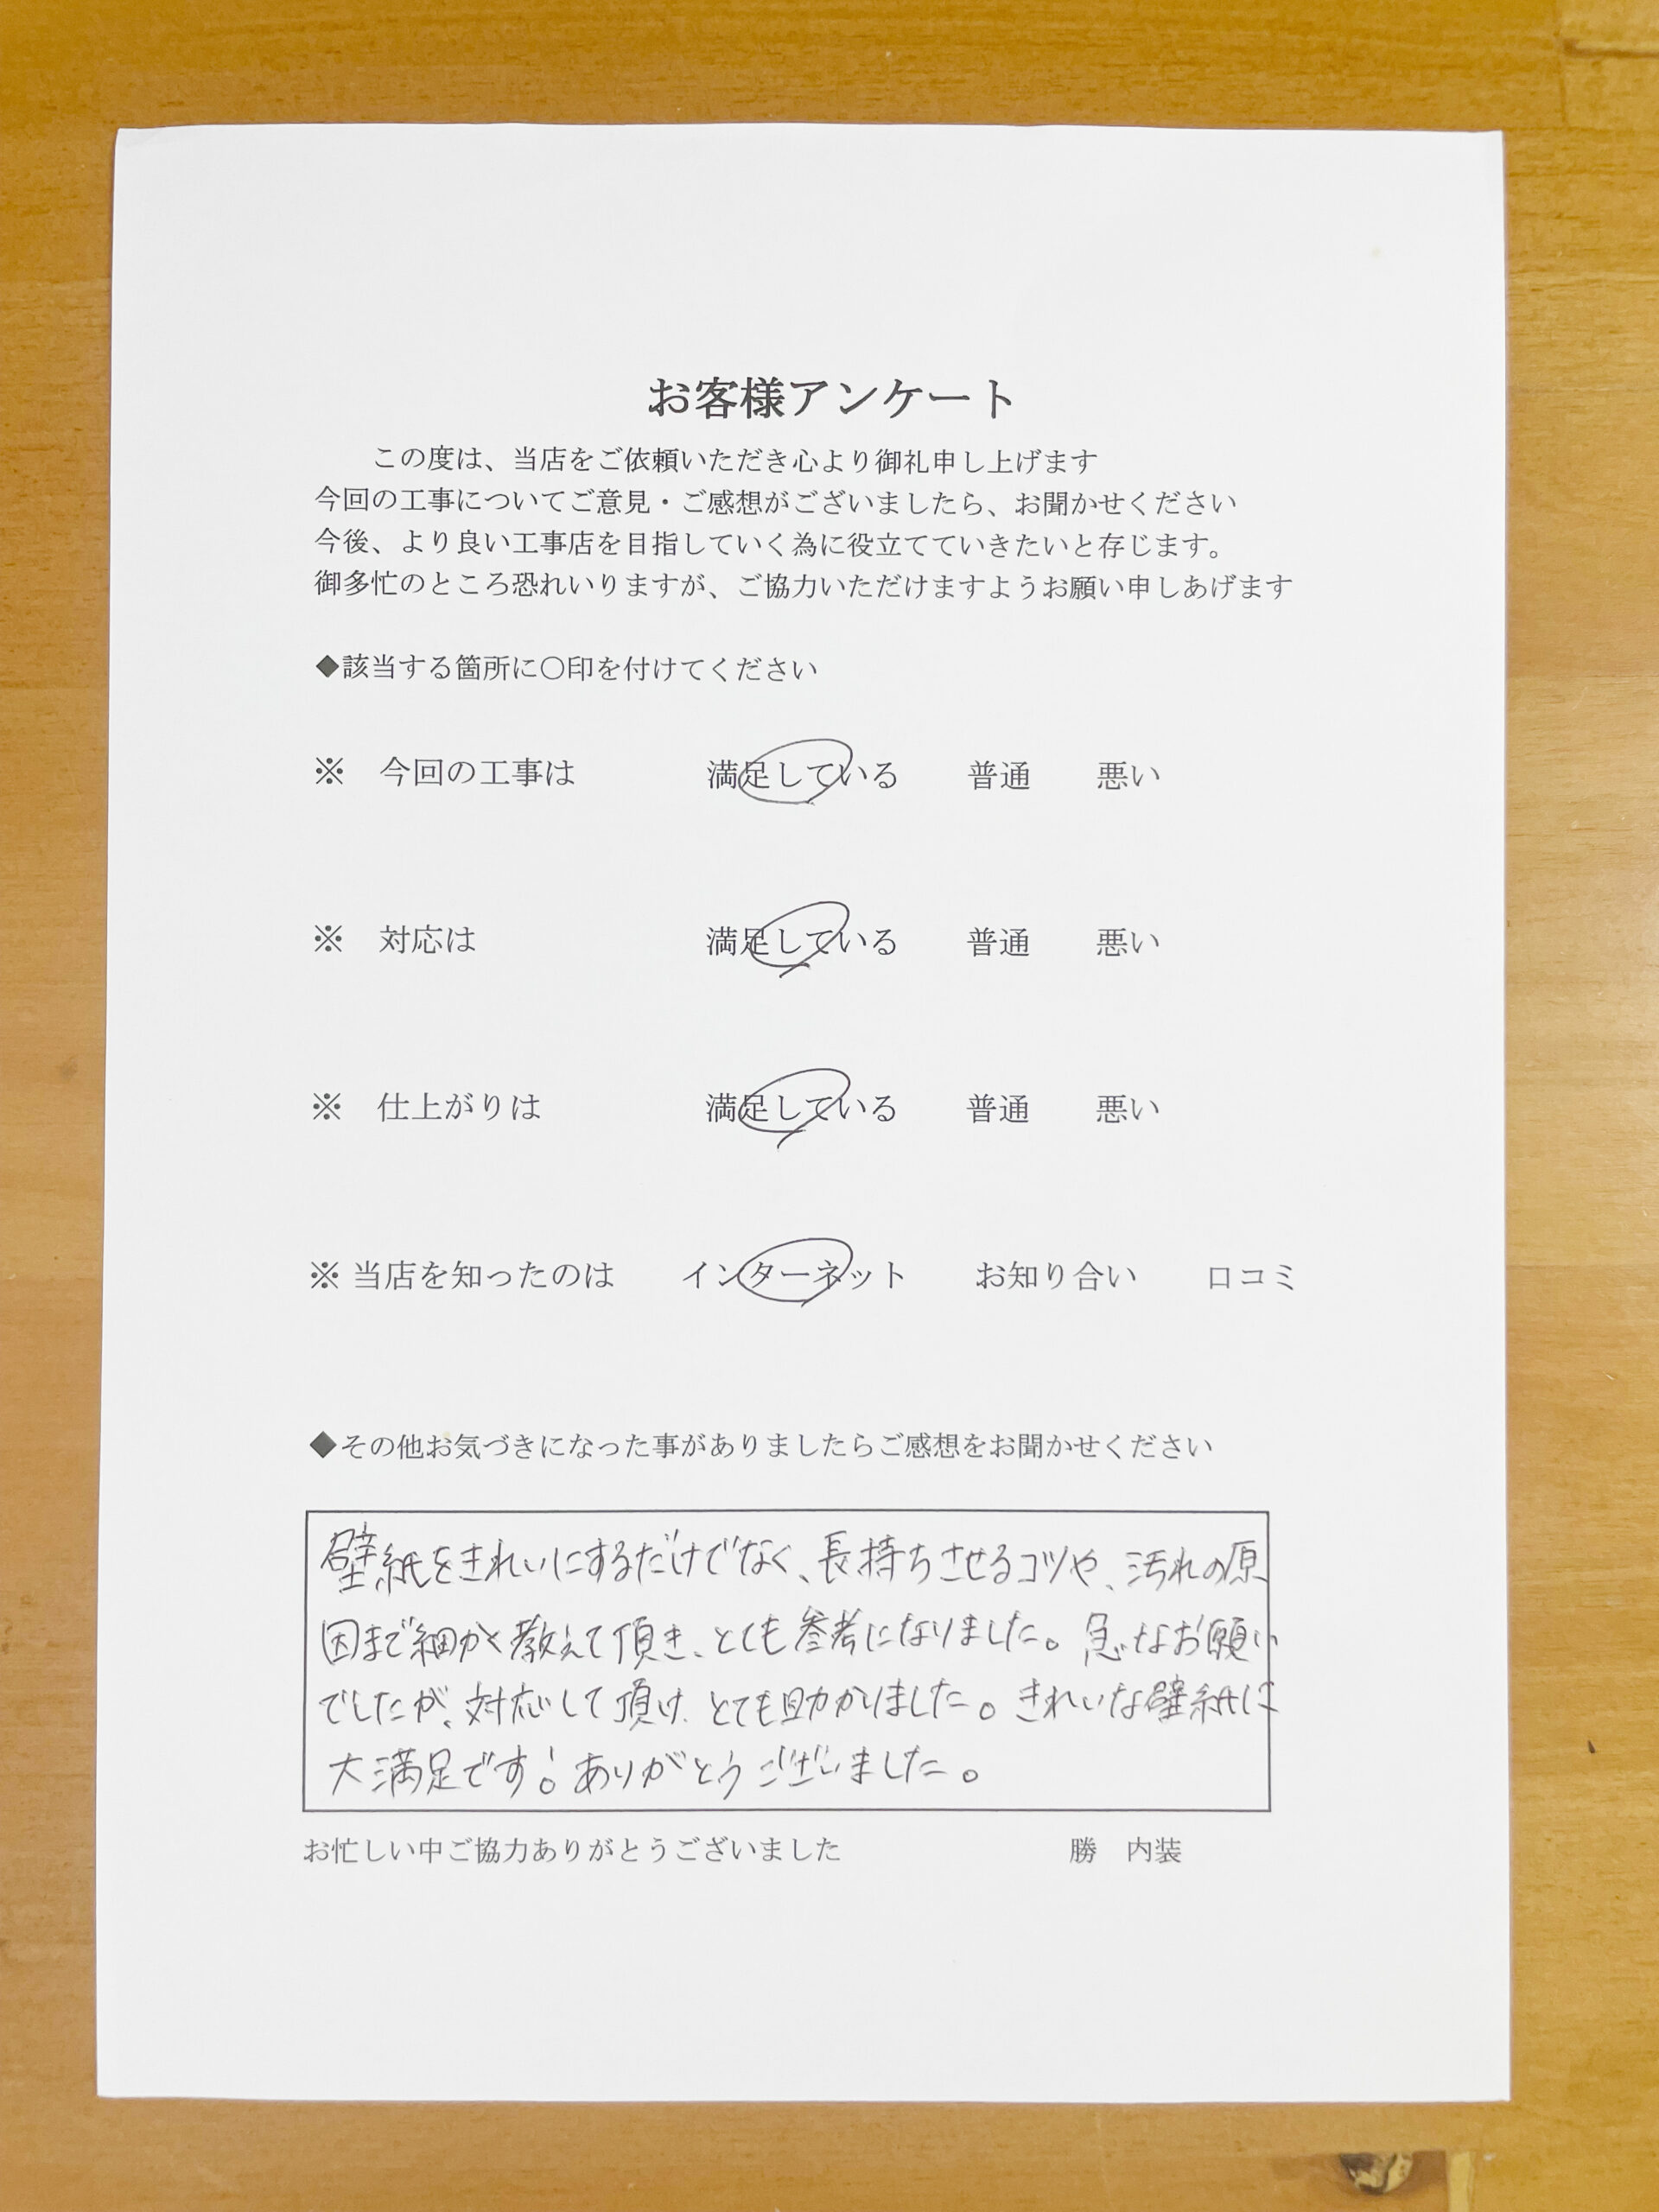 お客様アンケート
この度は、当店をご依頼いただき心より御礼申し上げます
今回の工事についてご意見・ご感想がございましたら、お聞かせください
今後、より良い工事店を目指していく為に役立てていきたいと存じます。
御多忙のところ恐れいりますが、ご協力いただけますようお願い申しあげます
◆該当する箇所に〇印を付けてください
※ 今回の工事は 満足している 普通 悪い
※ 対応は 満足している 普通 悪い
※ 仕上がりは 満足している 普通 悪い
※ 当店を知ったのは インターネット お知り合い 口コミ
◆その他お気づきになった事がありましたらご感想をお聞かせください
壁紙をきれいにするだけでなく、長持ちさせるコツや、汚れの原
因まで細かく教えて頂き、とても参考になりました。急なお願い
でしたが、対応して頂け、とても助かりました。きれいな壁紙に
大満足です!ありがとうございました。
お忙しい中ご協力ありがとうございました 勝 内装